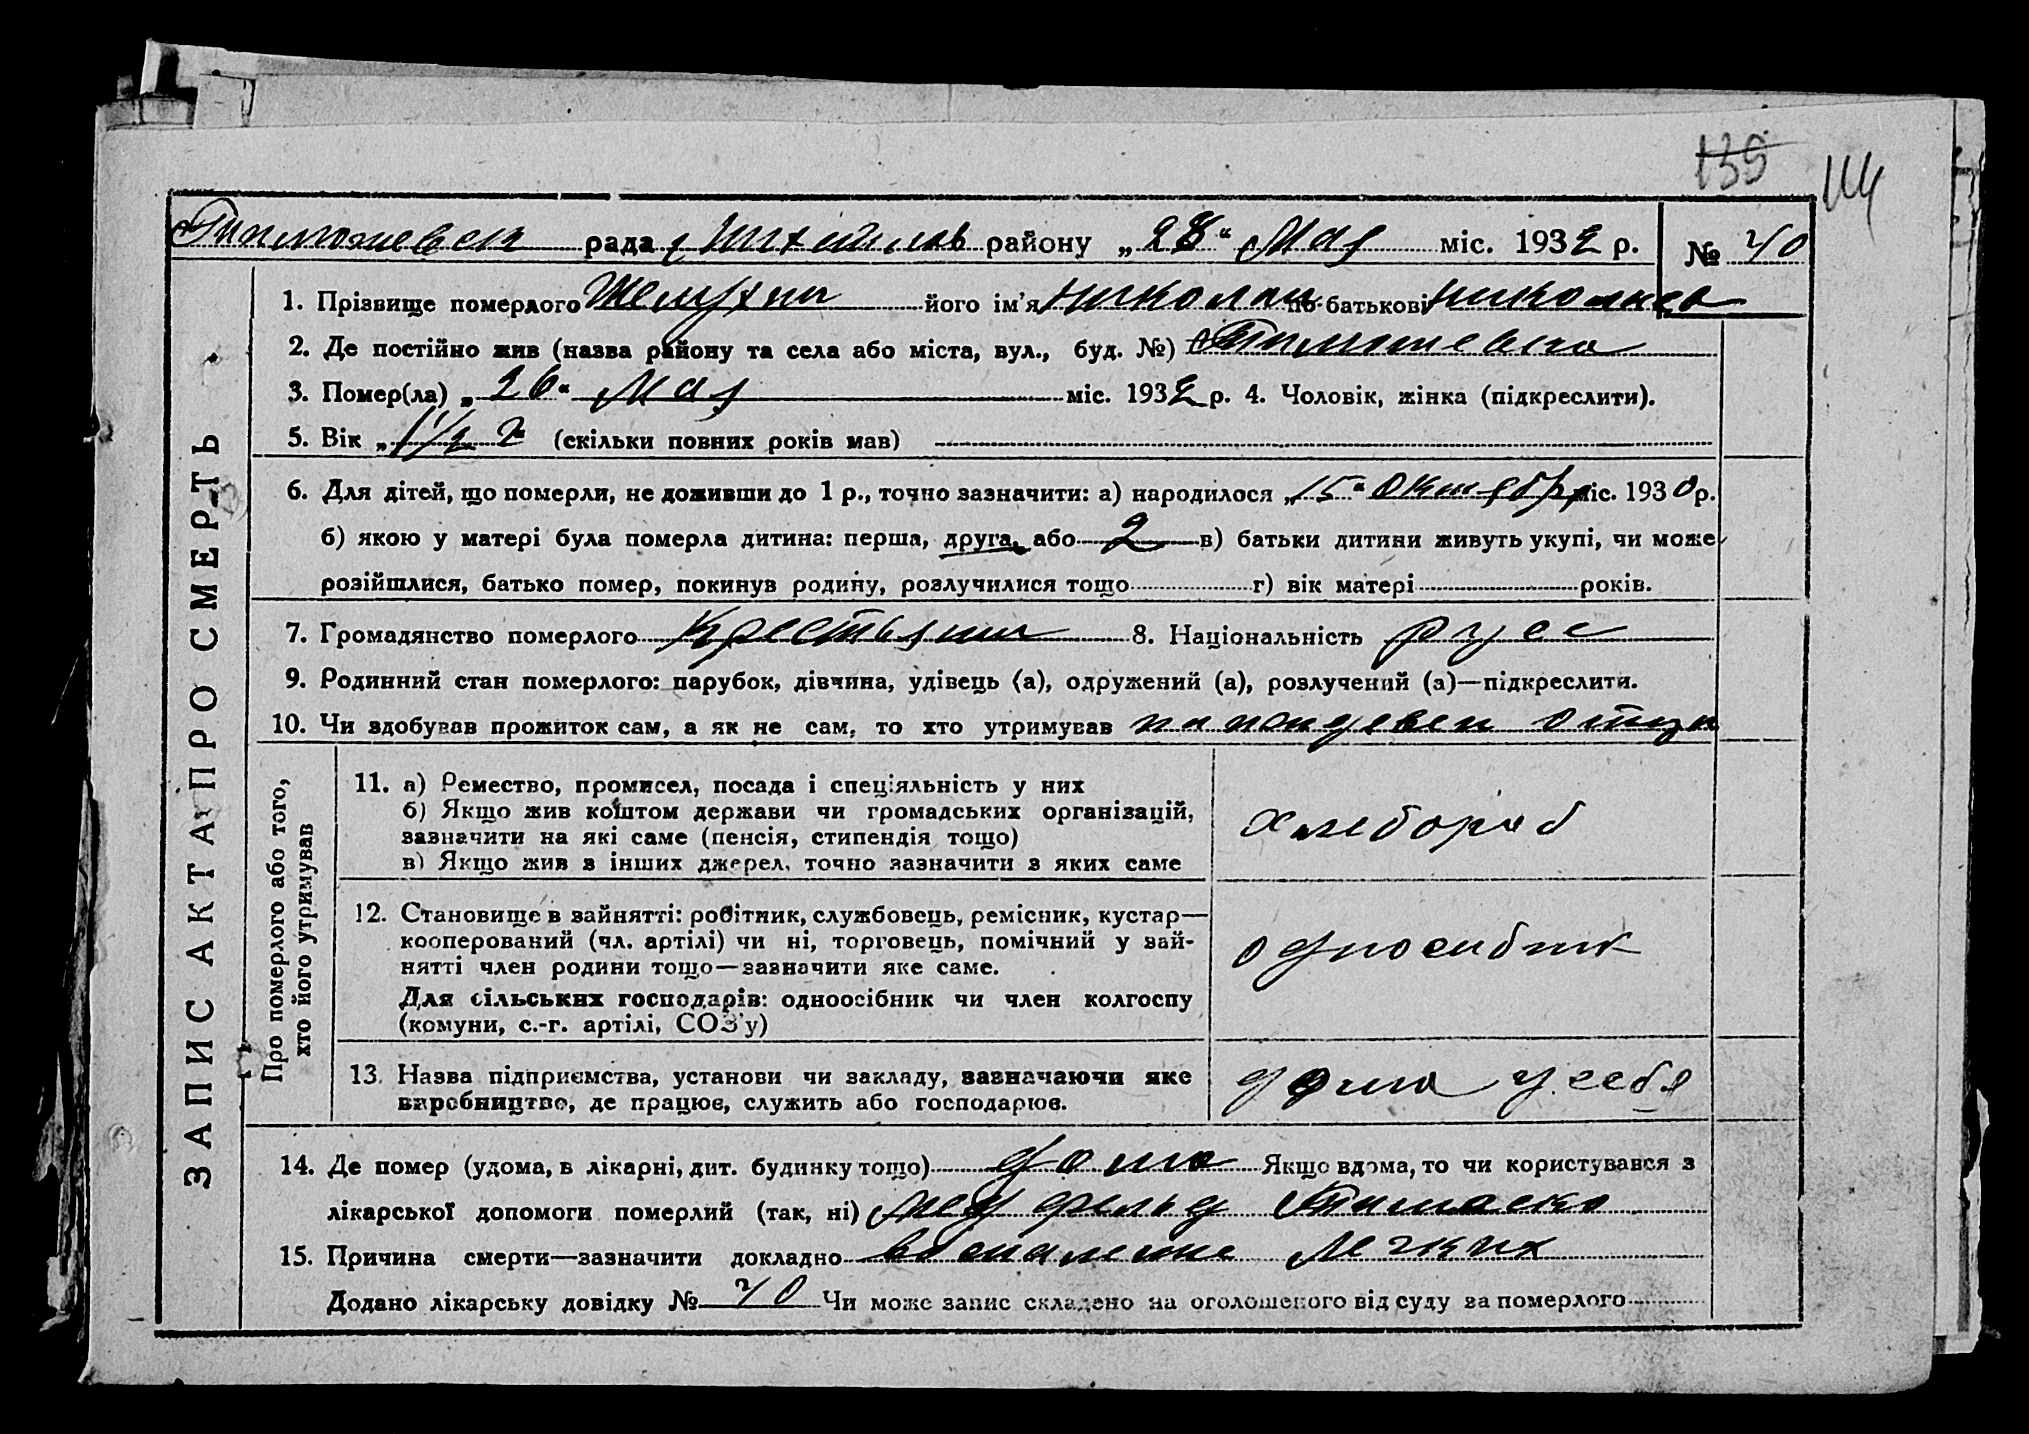 139 114
Тимошевск рада Михайлов району „28“ Мая міс. 1932 р. № 40
1. Прізвище померлого його ім'я Николай по-батькові
2. Де постійно жив (назва району та села або міста, вул., буд. №) Тимошевка
3. Помер(ла) „26“ Мая міс. 1932 р. 4. Чоловік, жінка (підкреслити).
5. Вік „1 1/2 г (скільки повних років мав)
6. Для дітей, що померли, не доживши до 1 р., точно зазначити: а) народилося „15“ Октября міс. 1930 р.
б) якою у матері була померла дитина: перша, друга, або 2 в) батьки дитини живуть укупі, чи може
розійшлися, батько помер, покинув родину, розлучилися тощо г) вік матері років.
7. Громадянство померлого Крестьянин 8. Національність русс
9. Родинний стан померлого: парубок, дівчина, удівець (а), одружений (а), розлучений (а)—підкреслити.
10. Чи здобував прожиток сам, а як не сам, то хто утримував на иждевен отца
11. а) Ремество, промисел, посада і спеціяльність у них
б) Якщо жив коштом держави чи громадських організацій,
зазначити на які саме (пенсія, стипендія тощо)
в) Якщо жив з інших джерел, точно зазначити з яких саме
хлебороб
12. Становище в зайнятті: робітник, службовець, ремісник, кустар—
кооперований (чл. артілі) чи ні, торговець, помічний у зай-
нятті член родини тощо—зазначити яке саме.
Для сільських господарів: одноосібник чи член колгоспу
(комуни, с.-г. артілі, СОЗ'у)
односибник
13. Назва підприємства, установи чи закладу, зазначаючи яке
виробництво, де працює, служить або господарює.
дома у себя
14. Де помер (удома, в лікарні, дит. будинку тощо) дома Якщо вдома, то чи користувався з
лікарської допомоги померлий (так, ні)
15. Причина смерти—зазначити докладно воспаление легких
Додано лікарську довідку № 40 Чи може запис складено на оголошеного від суду за померлого
ЗАПИС АКТА ПРО СМЕРТЬ.
Про померлого або того,
хто його утримував